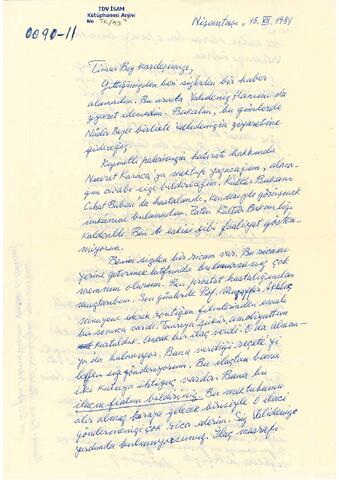 TDV İSAM
Kütüphanesi Arşivi
No TE/53
0090-11
Nişantaşı, 15.XII.1981
Timur Bey kardeşimiz,
Gittiğinizden beri sizlerden bir haber
alamadım. Bu arada Valideniz Hanımı da
ziyaret edemedim. Bakalım, bu günlerde
Nadir Beyle birlikte Validenizin ziyaretine
gideceğiz.
Kıymetli pederinizin hatıratı hakkında
Nusret Karaca ya mektup yazacağım, alaca-
ğım cevabı size bildireceğim. Kültür Bakanı
Cihat Baban da hastalandı, kendisiyle görüşmek
imkânını bulamadım. Zaten Kültür Bakanlığı
kaldırıldı. Ben de eskisi gibi faaliyet göstere-
miyorum.
Benim sizden bir ricam var. Bu ricamı
yerine getirmek lütfunda bulunursanız çok
memnun olurum. Ben prostat hastalığından
muztaribim. Son günlerde Prof. Muzaffer
muayene ederek
bir sonuca vardı. Tanrıya şükür, ameliyattan
kurtuldum. Ancak bir ilaç verdi. O da Alman-
ya da bulunuyor. Bana verdiği reçete yi
leffen size gönderiyorum. Bu ilaçtan bana
iki kutuya ihtiyaç vardır. Bana bu
ilacın fiatını bildiriniz. Bu mektubumu
alır almaz buraya gelecek birisiyle o ilacı
göndermenizi çok rica ederim. Siz Validenize
yardımda bulunuyorsunuz. İlaç masrafı